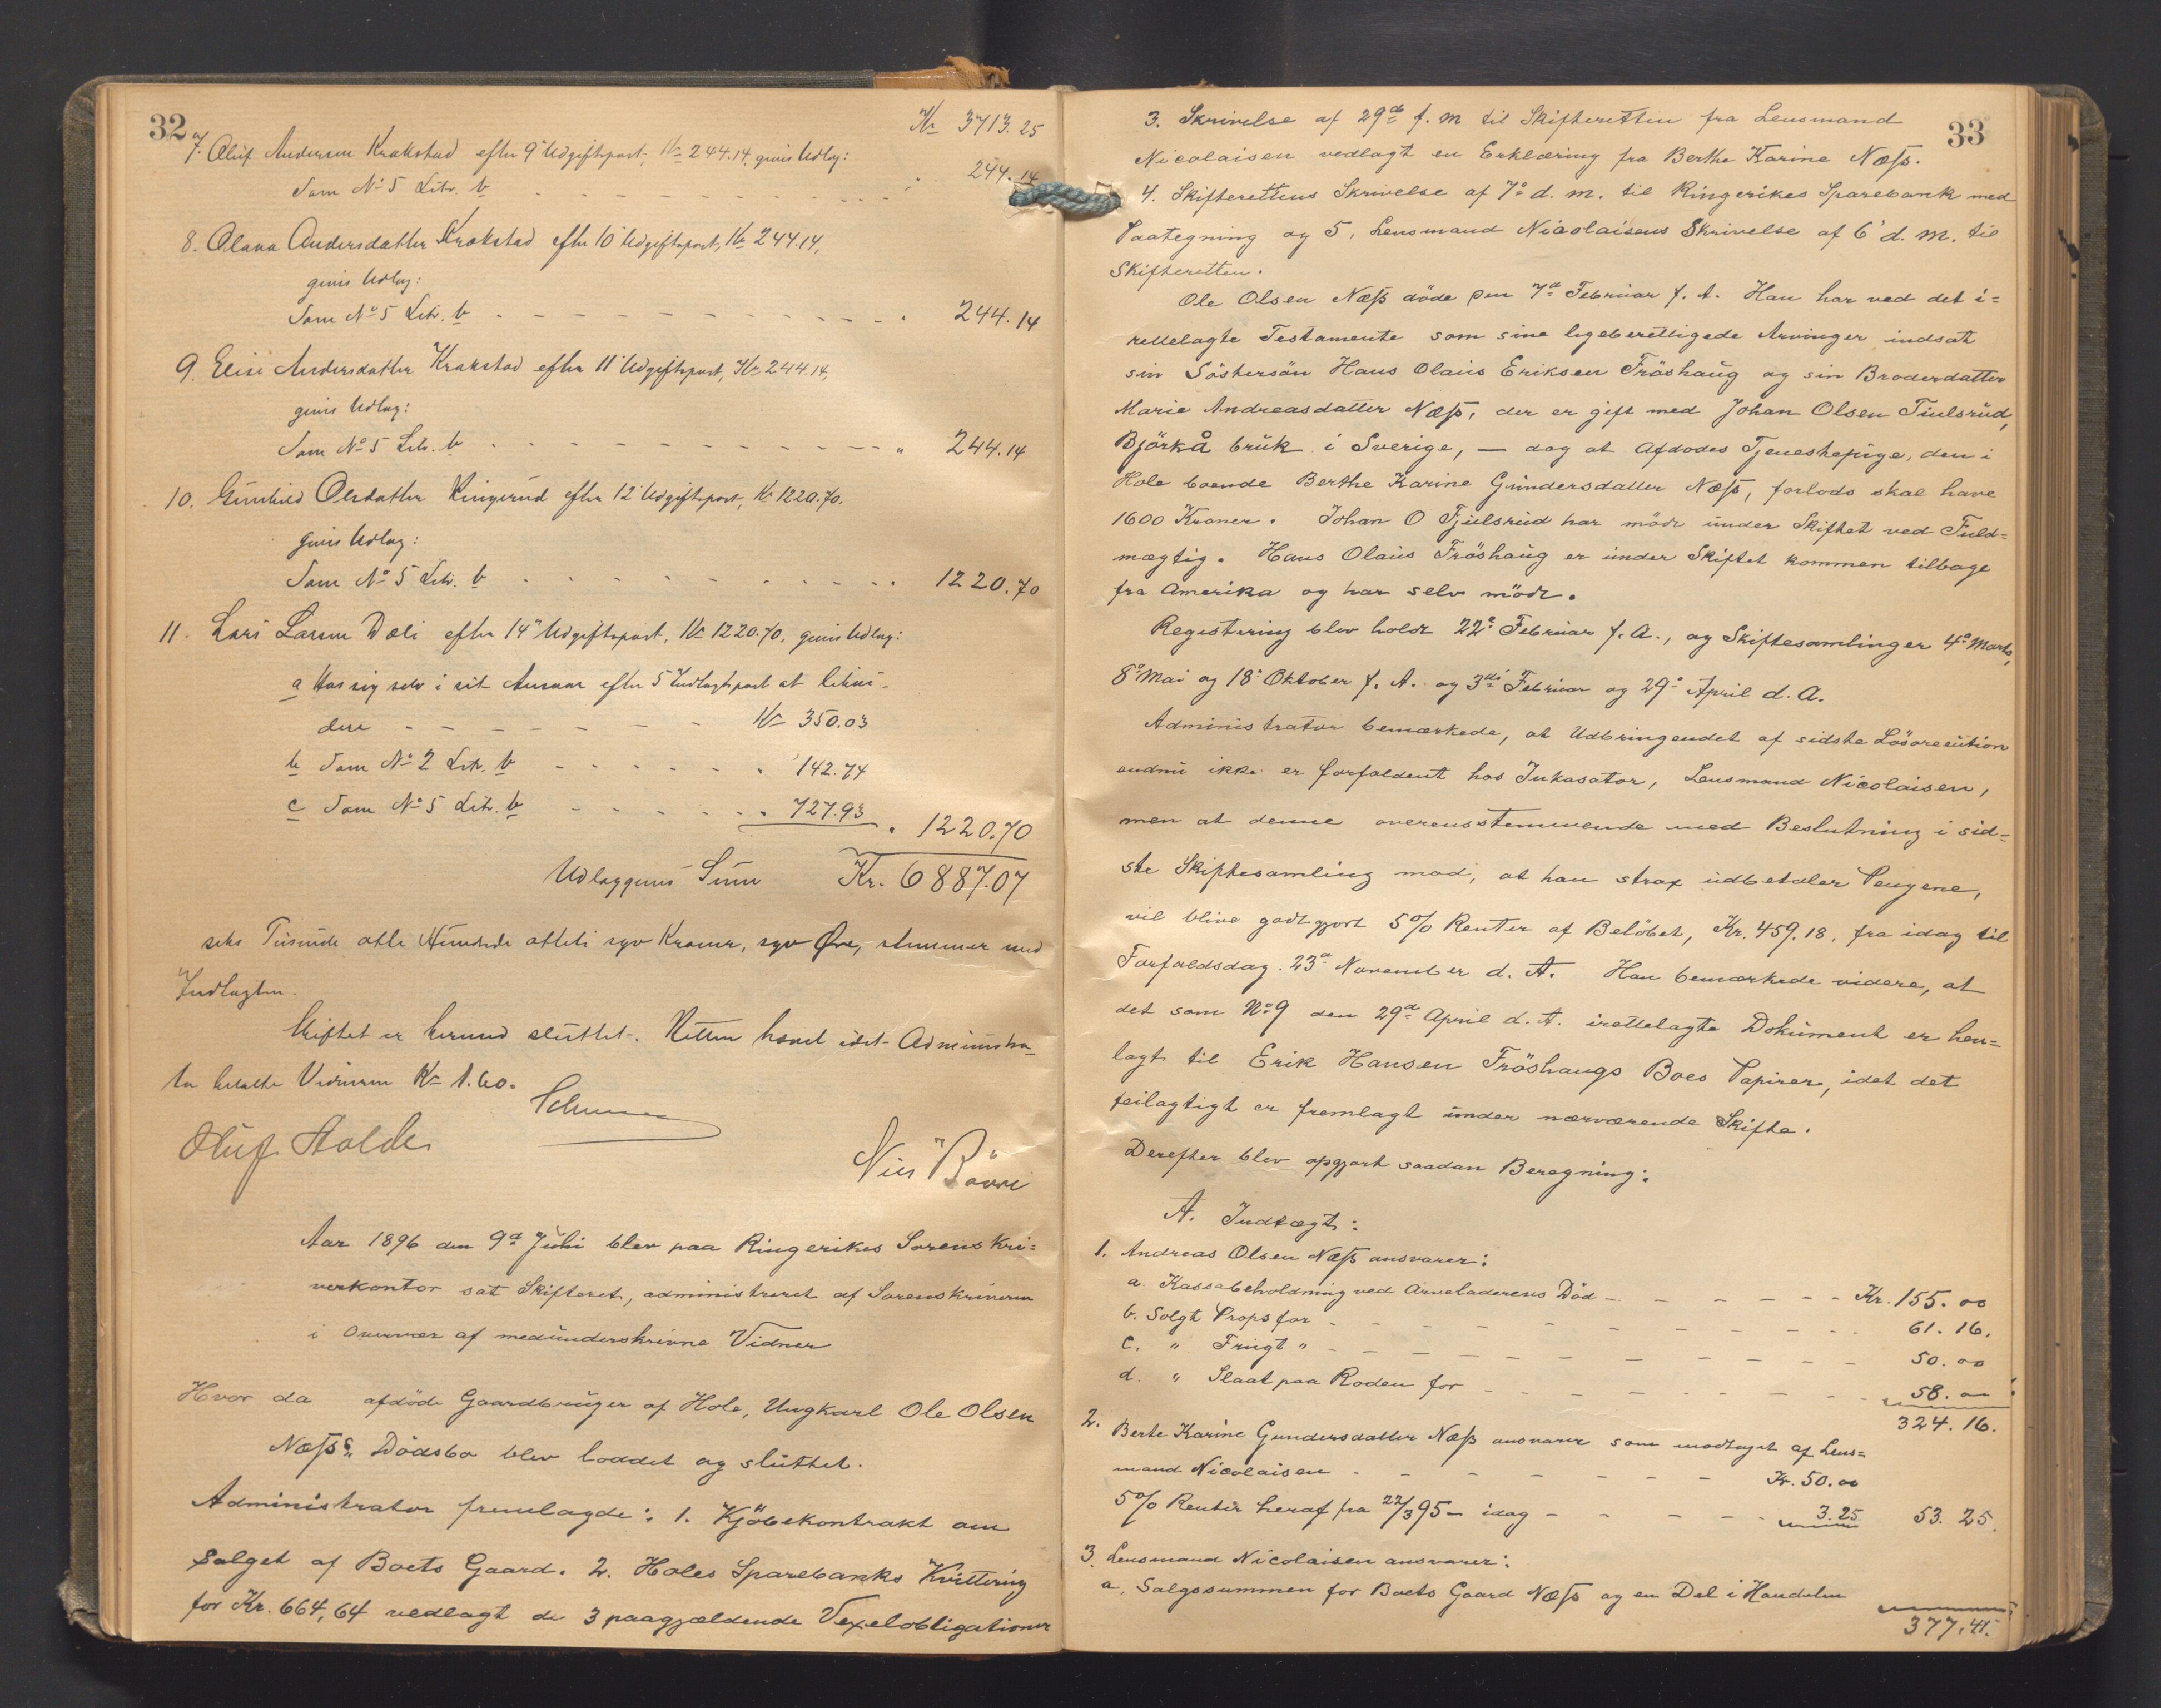 32
Kr 3713.25
7. Oluf Andersen Krakstad efter 9' Udgiftspost, Kr 244.14, givis Udlæg:
Som No 5 Litr. b - - - - - - - - - " 244.14
8. Olava Andersdatter Krakstad efter 10' Udgiftspost, Kr 244.14,
givis Udlæg:
Som No 5 Litr. b - - - - - - - - - " 244.14
9. Elise Andersdatter Krakstad efter 11' Udgiftspost, Kr 244.14,
givis Udlæg:
Som No 5 Litr. b - - - - - - - - - " 244.14
10. Gunhild Olsdatter Ringerud efter 12' Udgiftspost, Kr 1220.70,
givis Udlæg:
Som No 5 Litr. b - - - - - - - - - " 1220.70
11. Lars Larsen Dæli efter 14' Udgiftspost, Kr 1220.70, givis Udlæg:
a Hos sig selv i sit Ansvar efter 5' Indtægtspost at likvi-
dere - - - - - - Kr 350.03
b Som No 2 Litr. b - - - - - " 142.74
c Som No 5 Litr. b - - - - - " 727.93 " 1220.70
Udlæggenes Sum Kr. 6887.07
seks Tusinde otte Hundrede otteti syv Kroner, syv Øre, stemmer med
Indtægten.
Skiftet er hermed sluttet. Retten hævet idet Administra-
tor betalte Vidnerne Kr 1.60.
Oluf Stalde
Aar 1896 den 9de Juli blev paa Ringerikes Sorenskri=
verkontor sat Skifteret, administreret af Sorenskriveren
i Overvær af medunderskrivne Vidner
Hvor da afdøde Gaardbruger af Hole, Ungkarl Ole Olsen
Næss's Dødsbo blev loddet og sluttet.
Administrator fremlagde: 1. Kjøbekontrakt om
Salget af Boets Gaard. 2. Holes Sparebanks Kvittering
for Kr. 664,64 vedlagt de 3 paagjældende Vexelobligationer
33
3. Skrivelse af 29de f. M til Skifteretten fra Lensmand
Nicolaisen vedlagt en Erklæring fra Berthe Karine Næss.
4. Skifterettens Skrivelse af 7de d. M. til Ringerikes Sparebank med
Paategning og 5, Lensmand Nicolaisens Skrivelse af 6' d. M. til
Skifteretten.
Ole Olsen Næss døde den 7de Februar f. A. Han har ved det i=
rettelagte Testamente som sine ligeberettigede Arvinger indsat
sin Søstersøn Hans Olaus Eriksen Frøshaug og sin Broderdatter
Marie Andreasdatter Næss, der er gift med Johan Olsen Tiulsrud,
Björkå bruk i Sverige, — dog at Afdødes Tjenestepige, den i
Hole boende Berthe Karine Gundersdatter Næss, forlods skal have
1600 Kroner. Johan O Tjulsrud har mødt under Skiftet ved Fuld=
mægtig. Hans Olaus Frøshaug er under Skiftet kommen tilbage
fra Amerika og har selv mødt.
Registrering blev holdt 22de Februar f. A., og Skiftesamlinger 4de Marts,
8de Mai og 18de Oktober f. A. og 3die Februar og 29de April d. A.
Administrator bemærkede, at Udbringendet af sidste Løsøreauktion
endnu ikke er forfaldent hos Inkasator, Lensmand Nicolaisen,
men at denne overensstemmende med Beslutning i sid=
ste Skiftesamling mod, at han strax udbetaler Pengene,
vil blive godtgjort 5% Renter af Beløbet, Kr. 459.18, fra idag til
Forfaldsdag 23de November d. A. Han bemærkede videre, at
det som No 9 den 29de April d. A. irettelagte Dokument er hen=
lagt til Erik Hansen Frøshaugs Boes Papirer, idet det
feilagtigt er fremlagt under nærværende Skifte.
Derefter blev opgjort saadan Beregning:
A. Indtægt:
1. Andreas Olsen Næss ansvarer:
a. Kassabeholdning ved Arveladerens Død - - - - - Kr. 155.00
b. Solgt Props for - - - - - - - - - 61.16.
c. " Frugt " - - - - - - - - - 50.00
d. " Slaat paa Roden for - - - - - - - 58.00
324.16.
2. Berte Karine Gundersdatter Næss ansvarer som modtaget af Lens=
mand Nicolaisen - - - - - - - Kr. 50.00
5% Renter heraf fra 22/3 95 – idag - - - - - 3.25 53.25.
3. Lensmand Nicolaisen ansvarer:
a. Salgssummen for Boets Gaard Næss og en Del i Handelen
377.41.